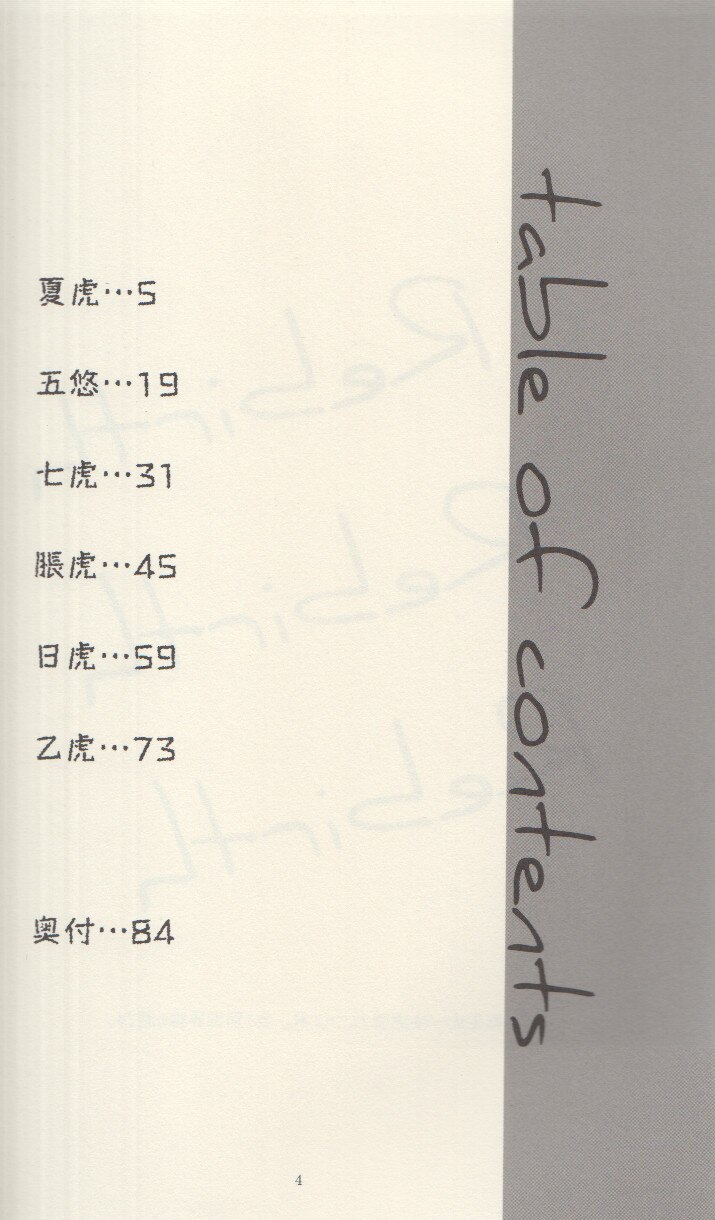 table of contents
夏虎…5
五悠…19
七虎…31
脹虎…45
日虎…59
乙虎…73
奥付…84
4